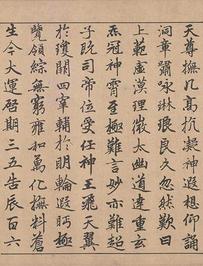 天尊撫几高抗凝神遐想仰誦
洞章嘯詠琳琅良久忽然歎曰
上範虛漠理微太幽道達重玄
炁冠神霄至極難言妙亦難超
子既司帝位受任神王飛天翼
於瓊闕四宰輔於明輪遐眄極
覽領綜無窮雍和萬化撫料蒼
生今大運啓期三五告辰百六